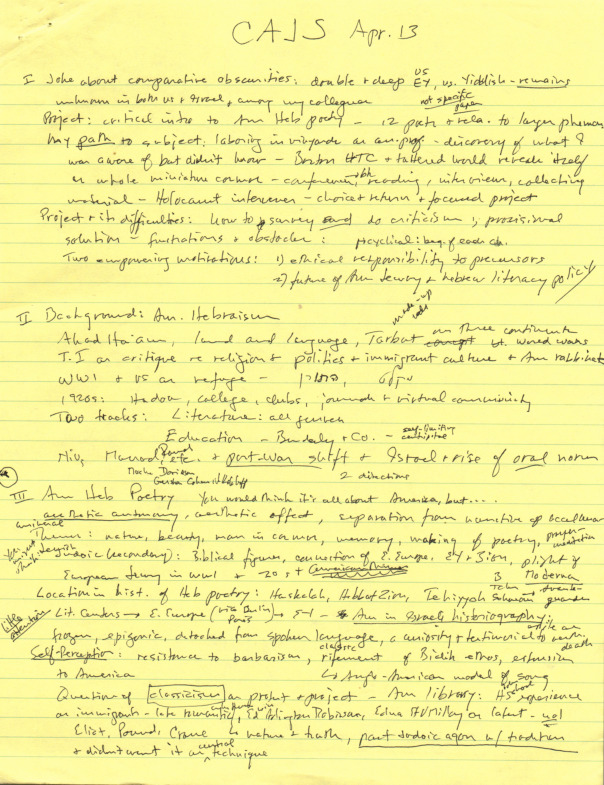 CAJS Apr. 13
I Joke about comparative obscurities: double & deep US EY, vs. Yiddish - remains
unknown in both US & Israel & among my colleagues
not specific paper
Project: critical intro to Am Heb poetry - 12 poets & rela. to larger phenom
My path to subject: laboring in vineyards as an prof - discovery of what I
was aware of but didn't know - Boston HTC & tattered world reveals itself
as whole miniature cosmos - conferences, reading, interviews, collecting
material - Holocaust intervenes - choice & return & focused project
Project & its difficulties: how to survey and do criticism, provisional
solution - frustrations & obstacles: encyclical: beg. of each ch.
Two empowering motivations: 1) ethical responsibility to precursors
2) future of Am Jewry & Hebrew literacy policy
II Background: Am. Hebraism
Ahad Ha'am, land and language, Tarbut on three continents bt. world wars
T.I as critique re religion & politics & immigrant culture & Am rabbinate
WWI & US as refuge -
1920s: Hadoar, college, clubs, journals & virtual community
Two tracks: Literature: all genres
Education - Benderly & Co. - self-limiting centripetal
Niv, Massad, Ramah, etc. & post-war shift & Israel & rise of oral norm
Moshe Davis 2 directions
Gerson Cohen
III Am Heb Poetry You would think it's all about America, but....
aesthetic autonomy, aesthetic effect, separation from
universal Themes: nature, beauty, man in cosmos, memory, making of poetry,
Judaic (secondary): Biblical figures, connection of E. Europe, EY & Zion, plight of
European Jewry in WWI & 20s &
Location in hist. of Heb poetry: Haskalah, Hibbat Zion, Tehiyyah Moderna
little attention Lit. Centers → E. Europe (via Berlin Paris) → EY - Am in Israeli historiography:
frozen, epigonic, detached from spoken language, a curiosity & testimonial to death
Self-Perception: resistance to barbarism, classic refinement of Bialik ethos, extension
to America → Anglo-American model of song
Question of classicism as protest & project - Am library: HS experience
as immigrants - late romantics, Ed Arlington Robinson, Edna St V Millay as latest - not
Eliot, Pound, Crane nature & truth, part Judaic agon w/ tradition
& didn't want it as central technique